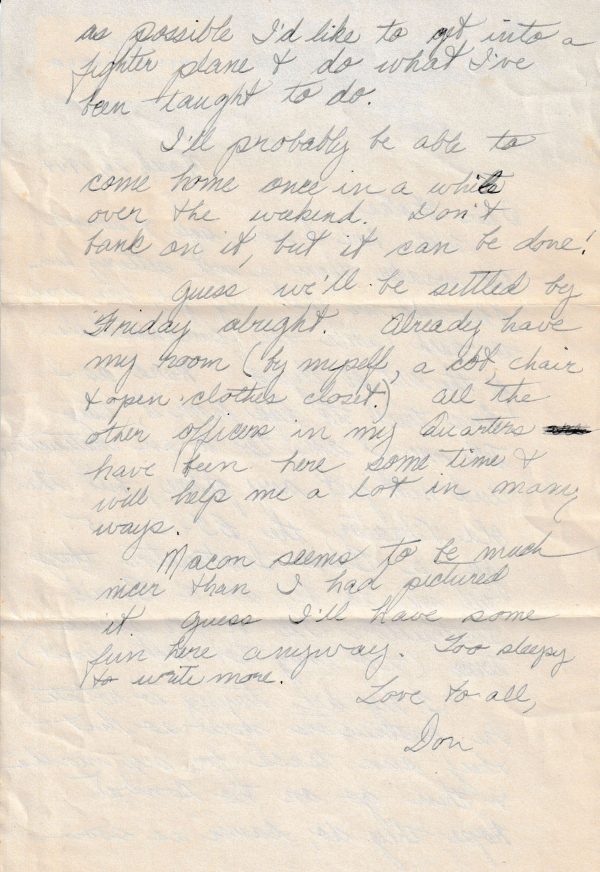 as possible I'd like to get into a
fighter plane & do what I've
been taught to do.
I'll probably be able to
come home once in a while
over the weekend. Don't
bank on it, but it can be done!
Guess we'll be settled by
Friday alright. Already have
my room (by myself, a cot, chair
& open clothes closet.) All the
other officers in my Quarters
have been here some time &
will help me a lot in many
ways.
Macon seems to be much
nicer than I had pictured
it guess I'll have some
fun here anyway. Too sleepy
to write more.
Love to all,
Don